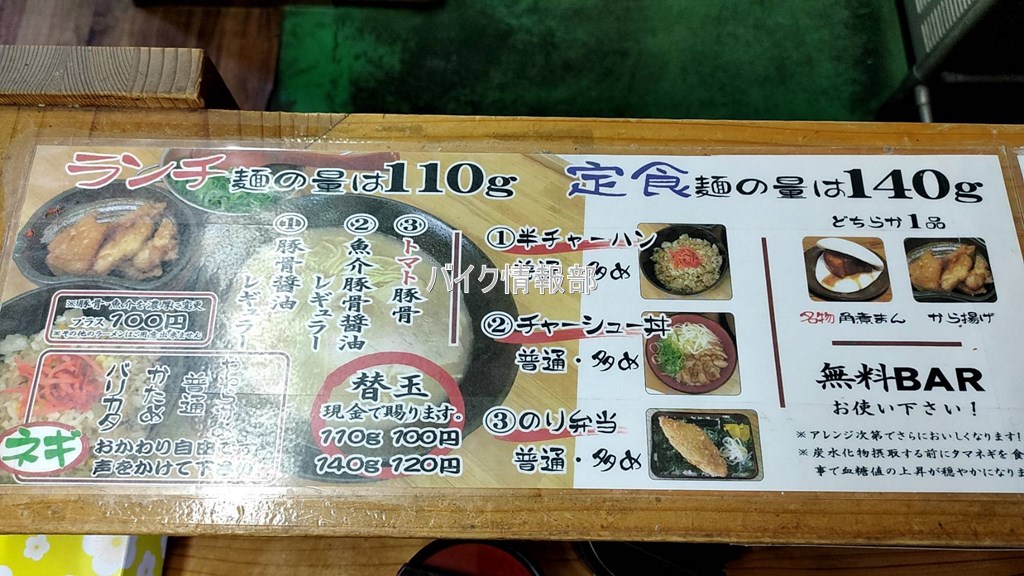 ランチ麺の量は110g
①豚骨醤油
レギュラー
②魚介豚骨醤油
レギュラー
③トマト豚骨
プラス100円
やわらか
普通
かため
バリカタ
ネギ
おかわり自由です
声をかけて下さい
替玉
現金で賜ります。
110g 100円
140g 120円
定食麺の量は140g
①半チャーハン
普通・多め
②チャーシュー丼
普通・多め
③のり弁当
普通・多め
どちらか1品
名物 角煮まん
から揚げ
無料BAR
お使い下さい!
※アレンジ次第でさらにおいしくなります!
※炭水化物摂取する前にタマネギを食
事で血糖値の上昇が穏やかになりま
バイク情報部